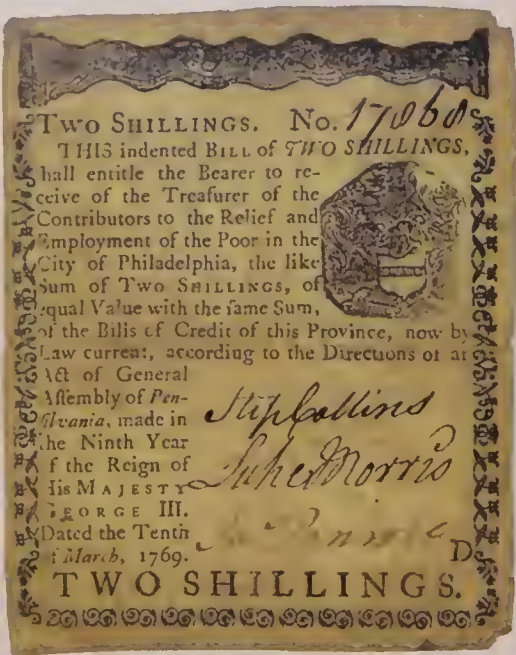 TWO SHILLINGS. No. 17868
THIS indented BILL of TWO SHILLINGS,
hall entitle the Bearer to re-
ceive of the Treaſurer of the
Contributors to the Relief and
Employment of the Poor in the
City of Philadelphia, the like
Sum of TWO SHILLINGS, of
equal Value with the ſame Sum,
of the Bills of Credit of this Province, now by
Law current, according to the Directions of an
Act of General
Aſſembly of Pen-
ſilvania, made in
the Ninth Year
of the Reign of
His MAJESTY
GEORGE III.
Dated the Tenth
of March, 1769.
Step Collins
Luke Morris
D.
TWO SHILLINGS.